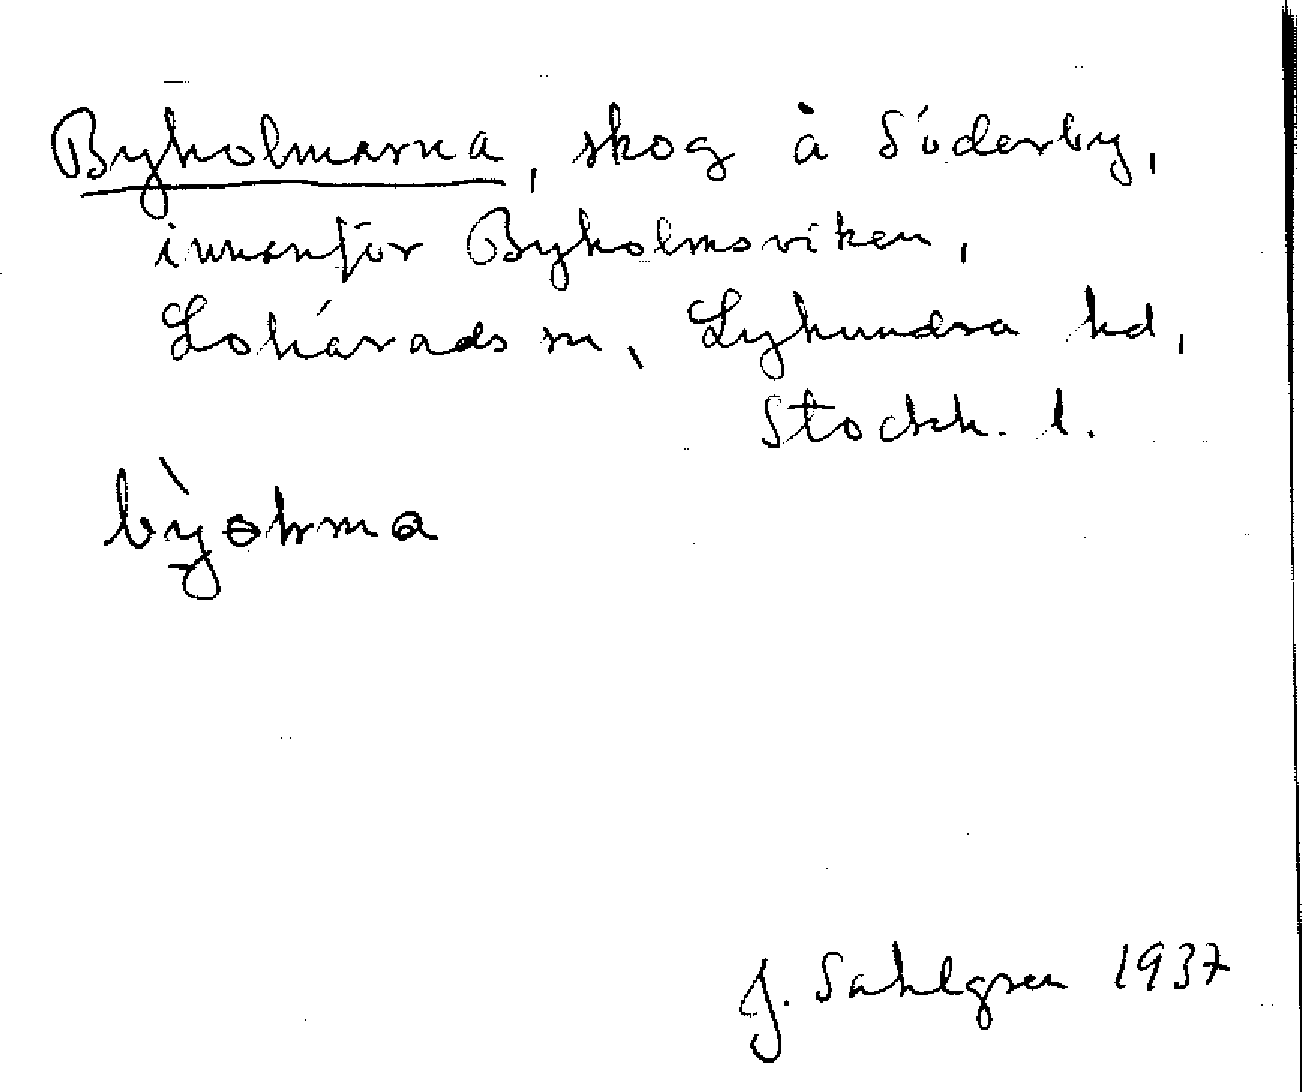 Byholmarna, skog å Söderby,
innanför Byholmsviken,
Lohärads sn, Lyhundra hd,
Stockh. l.
J. Sahlgren 1937